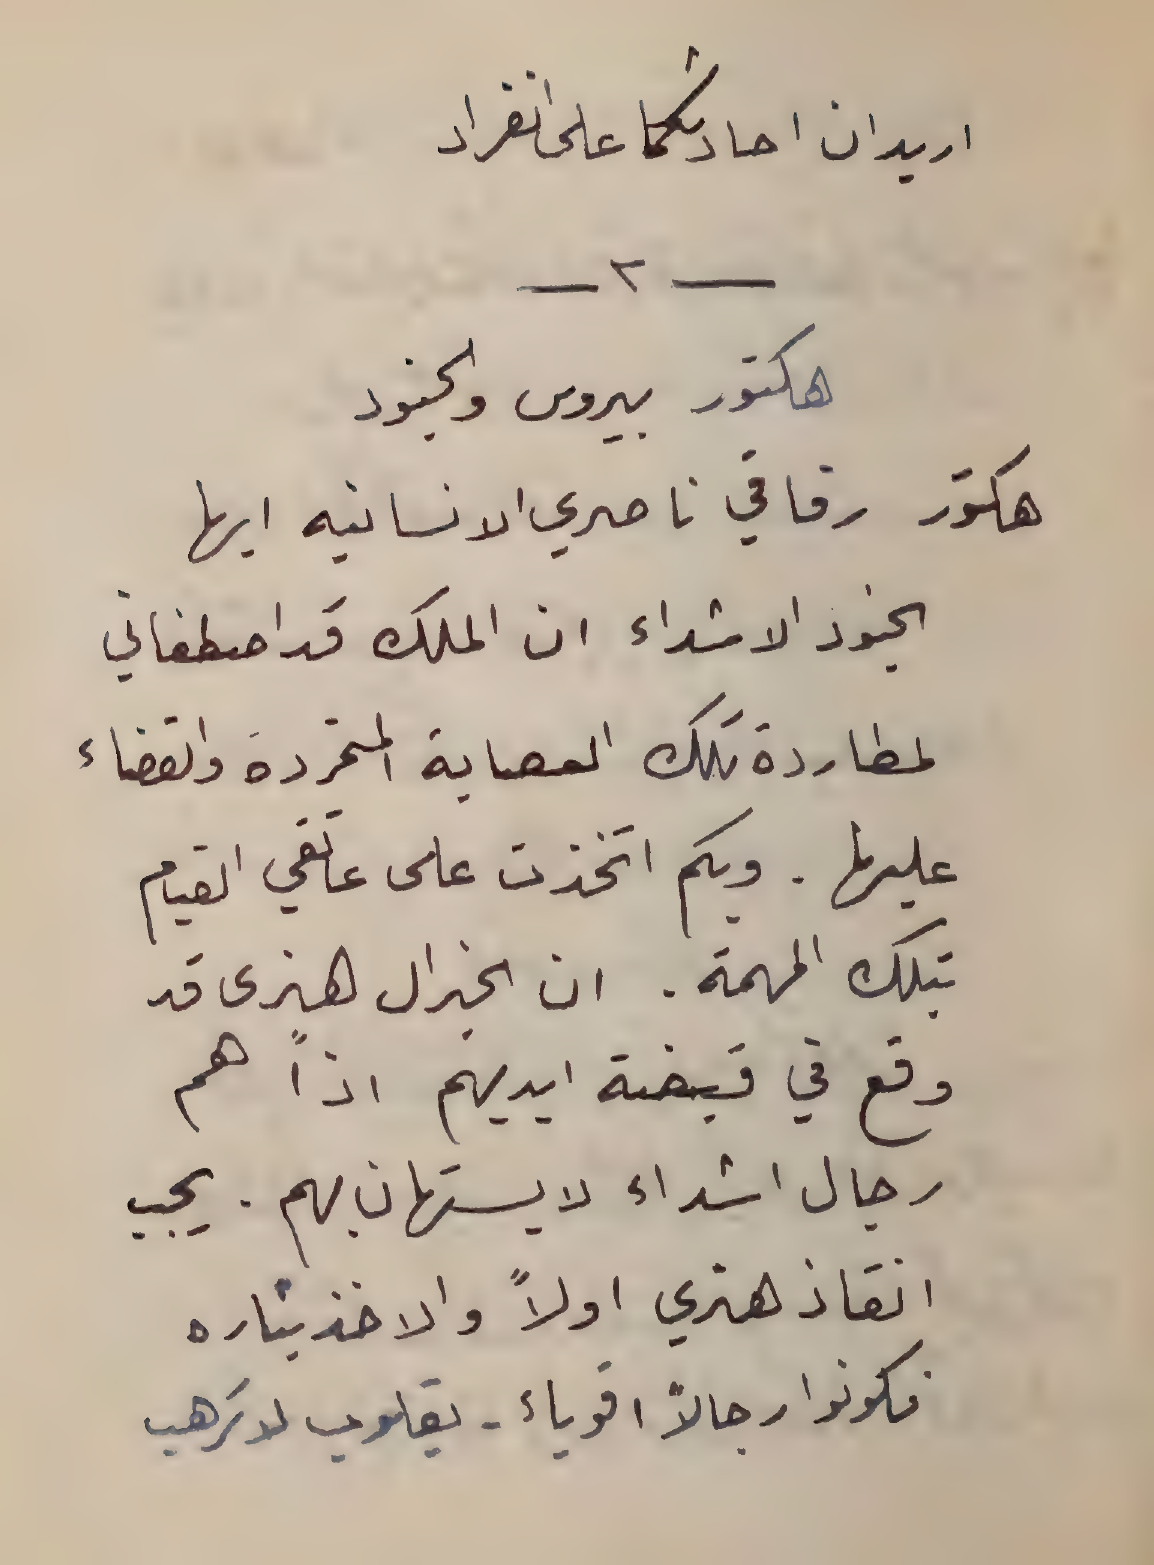 اريد ان احادثكما على انفراد
— ٢ —
هكتور بيروس والجنود
هكتور رفاقي ناصري الانسانيه ايها
الجنود الاشداء ان الملك قد اصطفاني
لمطاردة تلك العصابة المتمردة والقضاء
عليها . وبكم اتخذت على عاتقي القيام
بتلك المهمة . ان الجنرال هنرى قد
وقع في قبضة ايديهم اذاً هم
رجال اشداء لا يستهان بهم . يجب
انقاذ هنري اولاً والاخذ بثاره
فكونوا رجالاً اقوياء - بقلوب لا ترهب